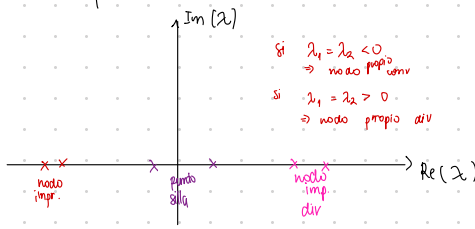 Im(λ)
Si λ₁ = λ₂ < 0
⇒ nodo propio conv
Si λ₁ = λ₂ > 0
⇒ nodo propio div
Re(λ)
nodo
impr.
punto
silla
nodo
imp.
div